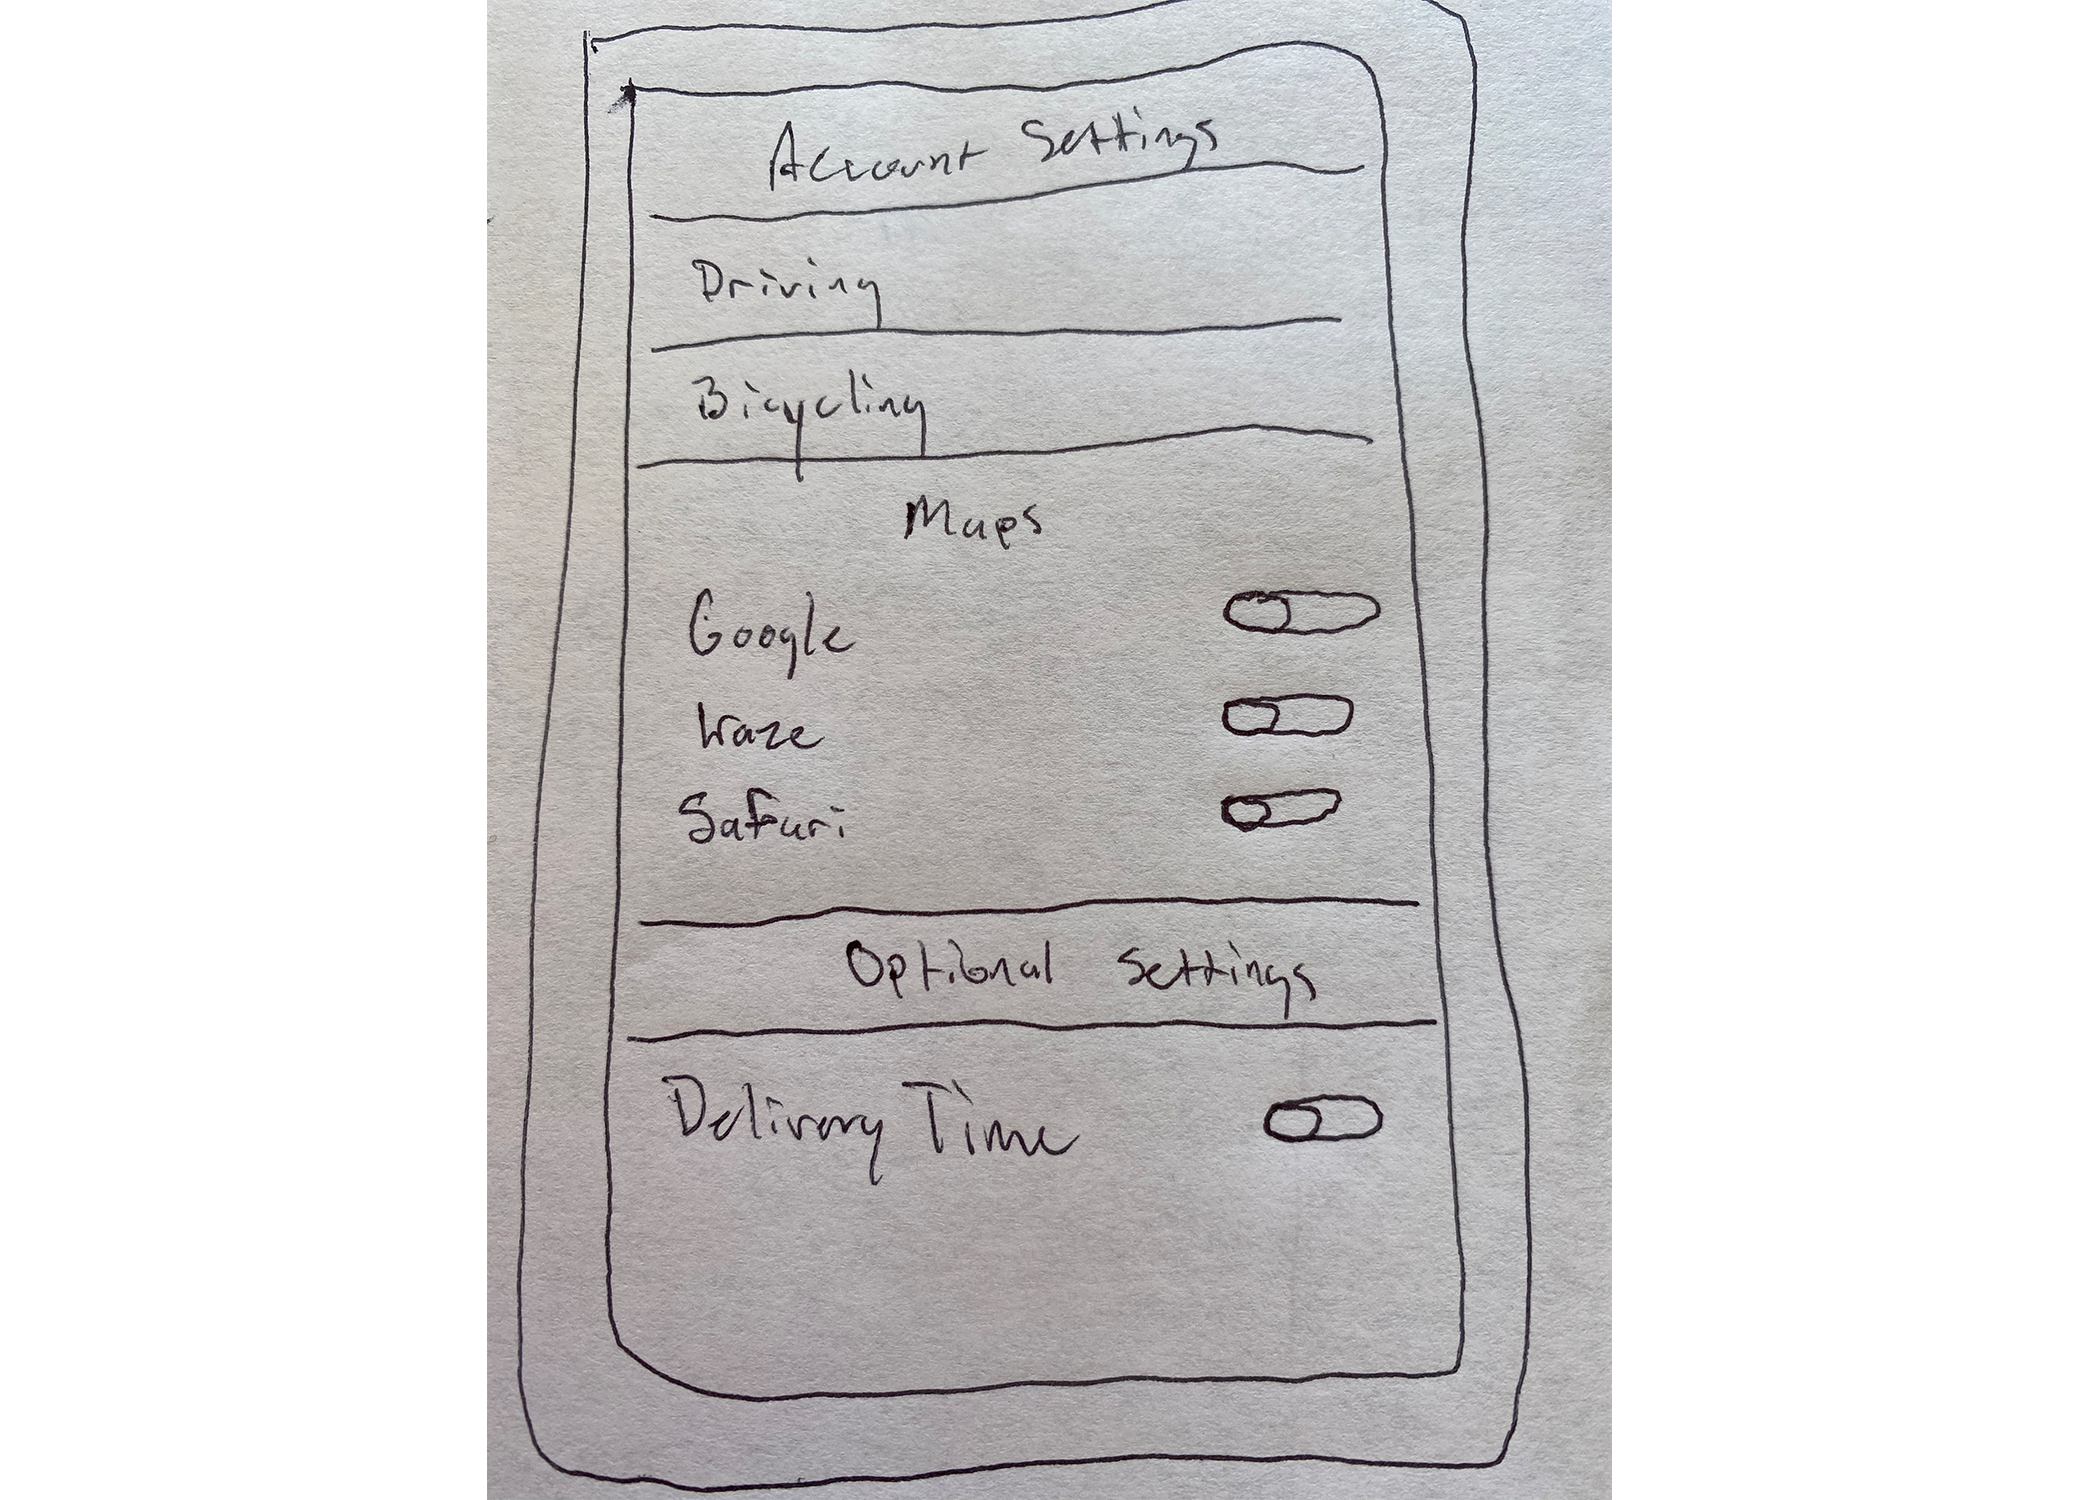 Account Settings
Driving
Bicycling
Maps
Google
Waze
Safari
Optional Settings
Delivery Time